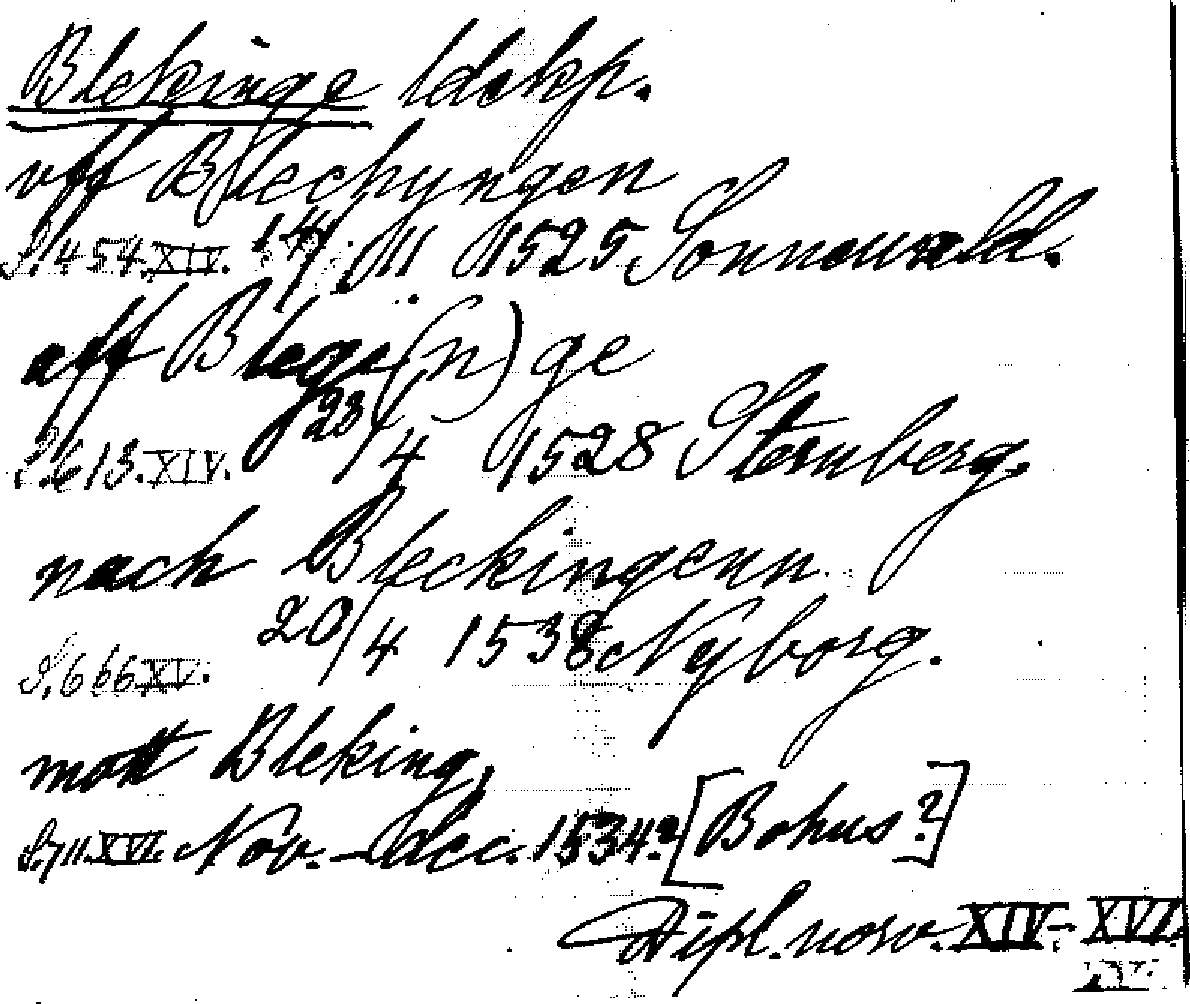 Blekinge ldskp.
vff Blechyngen
S. 454. XIV. 14/11 1525 Sonnewald.
aff Blegi(n)ge
S. 613. XIV. 28/4 1528 Sternberg.
nach Bleckingenn
20/4 1538 Nyborg.
S. 666 XV.
mott Bleking,
S. 711. XVI. Nov. - dec. 1534? [Bohus?]
Dipl. norv. XIV - XVI